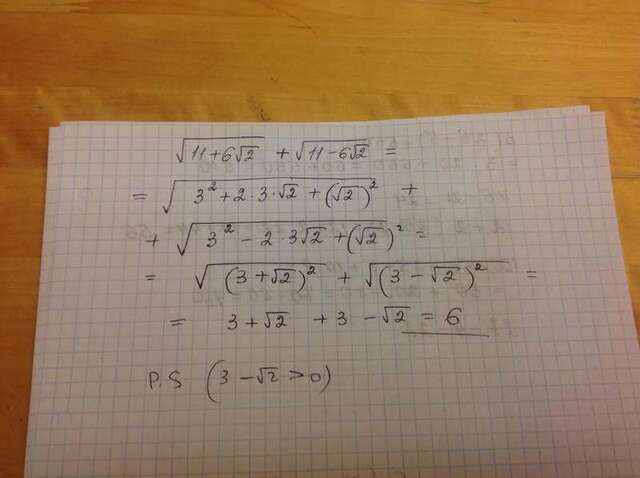 √(11+6√2) + √(11-6√2) =
= √(3² + 2·3·√2 + (√2)²) +
+ √(3² - 2·3√2 + (√2)²) =
= √((3+√2)²) + √((3-√2)²) =
= 3+√2 + 3 -√2 = 6
P.S (3-√2 > 0)